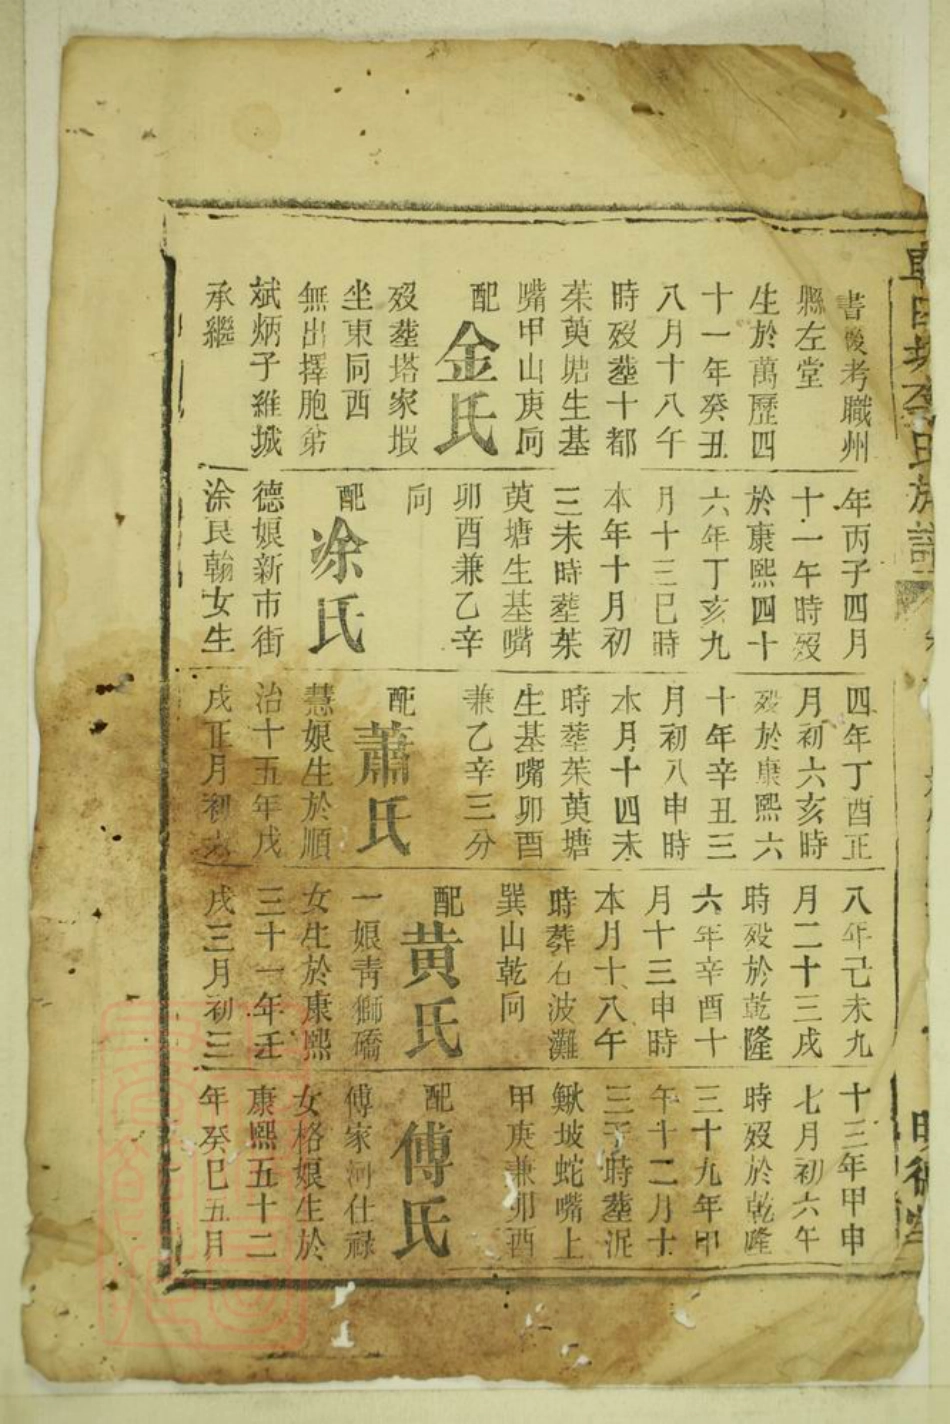 書後考職州
縣左堂
生於萬歷四
十一年癸丑
八月十八午
時歿塟十都
茱萸塘生基
嘴甲山庚向
配
金氏
歿塟塔家塅
坐東向西
無出擇胞弟
斌炳子維城
承繼
年丙子四月
十一午時歿
於康熙四十
六年丁亥九
月十三巳時
本年十月初
三未時塟茱
萸塘生基嘴
卯酉兼乙辛
向
配
涂氏
德娘新市街
涂民翰女生
四年丁酉正
月初六亥時
歿於康熙六
十年辛丑三
月初八申時
本月十四未
時塟茱萸塘
生基嘴卯酉
兼乙辛三分
配
蕭氏
慧娘生於順
治十五年戊
戌正月初六
八年己未九
月二十三戌
時歿於乾隆
六年辛酉十
月十三申時
本月十八午
時葬石波灘
巽山乾向
配
黃氏
一娘靑獅礄
女生於康熙
三十一年壬
戌三月初三
十三年甲申
七月初六午
時歿於乾隆
三十九年甲
午十二月十
三子時塟泥
鰍坡蛇嘴上
甲庚兼卯酉
配
傅氏
傅家河仕祿
女格娘生於
康熙五十二
年癸巳五月